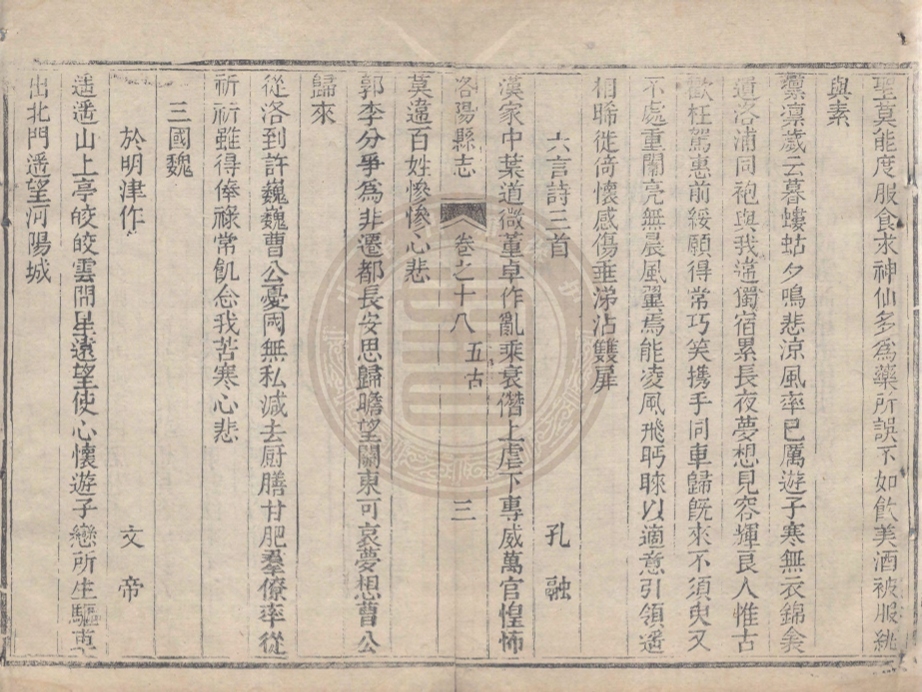 聖莫能度服食求神仙多為藥所誤不如飲美酒被服紈
與素
凛凛歲云暮螻蛄夕鳴悲涼風率已厲遊子寒無衣錦衾
遺洛浦同袍與我違獨宿累長夜夢想見容輝良人惟古
歡枉駕惠前綏願得常巧笑攜手同車歸既來不須臾又
不處重闈亮無晨風翼焉能凌風飛眄睞以適意引領遥
相睎徙倚懷感傷垂涕沾雙扉
六言詩三首 孔融
漢家中葉道微董卓作亂乘衰僭上虐下專威萬官惶怖
洛陽縣志 卷之十八 五古 三
莫違百姓慘慘心悲
郭李分爭為非遷都長安思歸瞻望關東可哀夢想曹公
歸來
從洛到許巍巍曹公憂國無私減去厨膳甘肥羣僚率從
祈祈雖得俸祿常飢念我苦寒心悲
三國魏
於明津作 文帝
遥遥山上亭皎皎雲間星遠望使心懷遊子戀所生驅車
出北門遥望河陽城